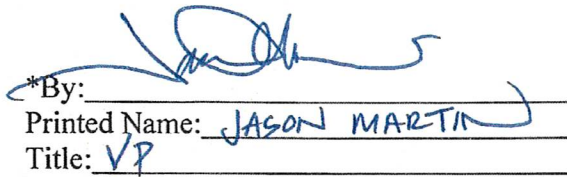 *By:
Printed Name: JASON MARTIN
Title: VP